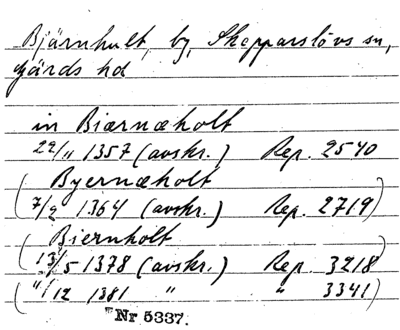 Bjärnhult, by, Skepparslövs sn,
Gärds hd
in Biærnæholt
22/11 1357 (avskr.) Rep. 2540
(Byernæholt
7/2 1364 (avskr.) Rep. 2719)
(Biernholt
13/5 1378 (avskr.) Rep. 3218)
(11/12 1381 " " 3341)
Nr 5337.